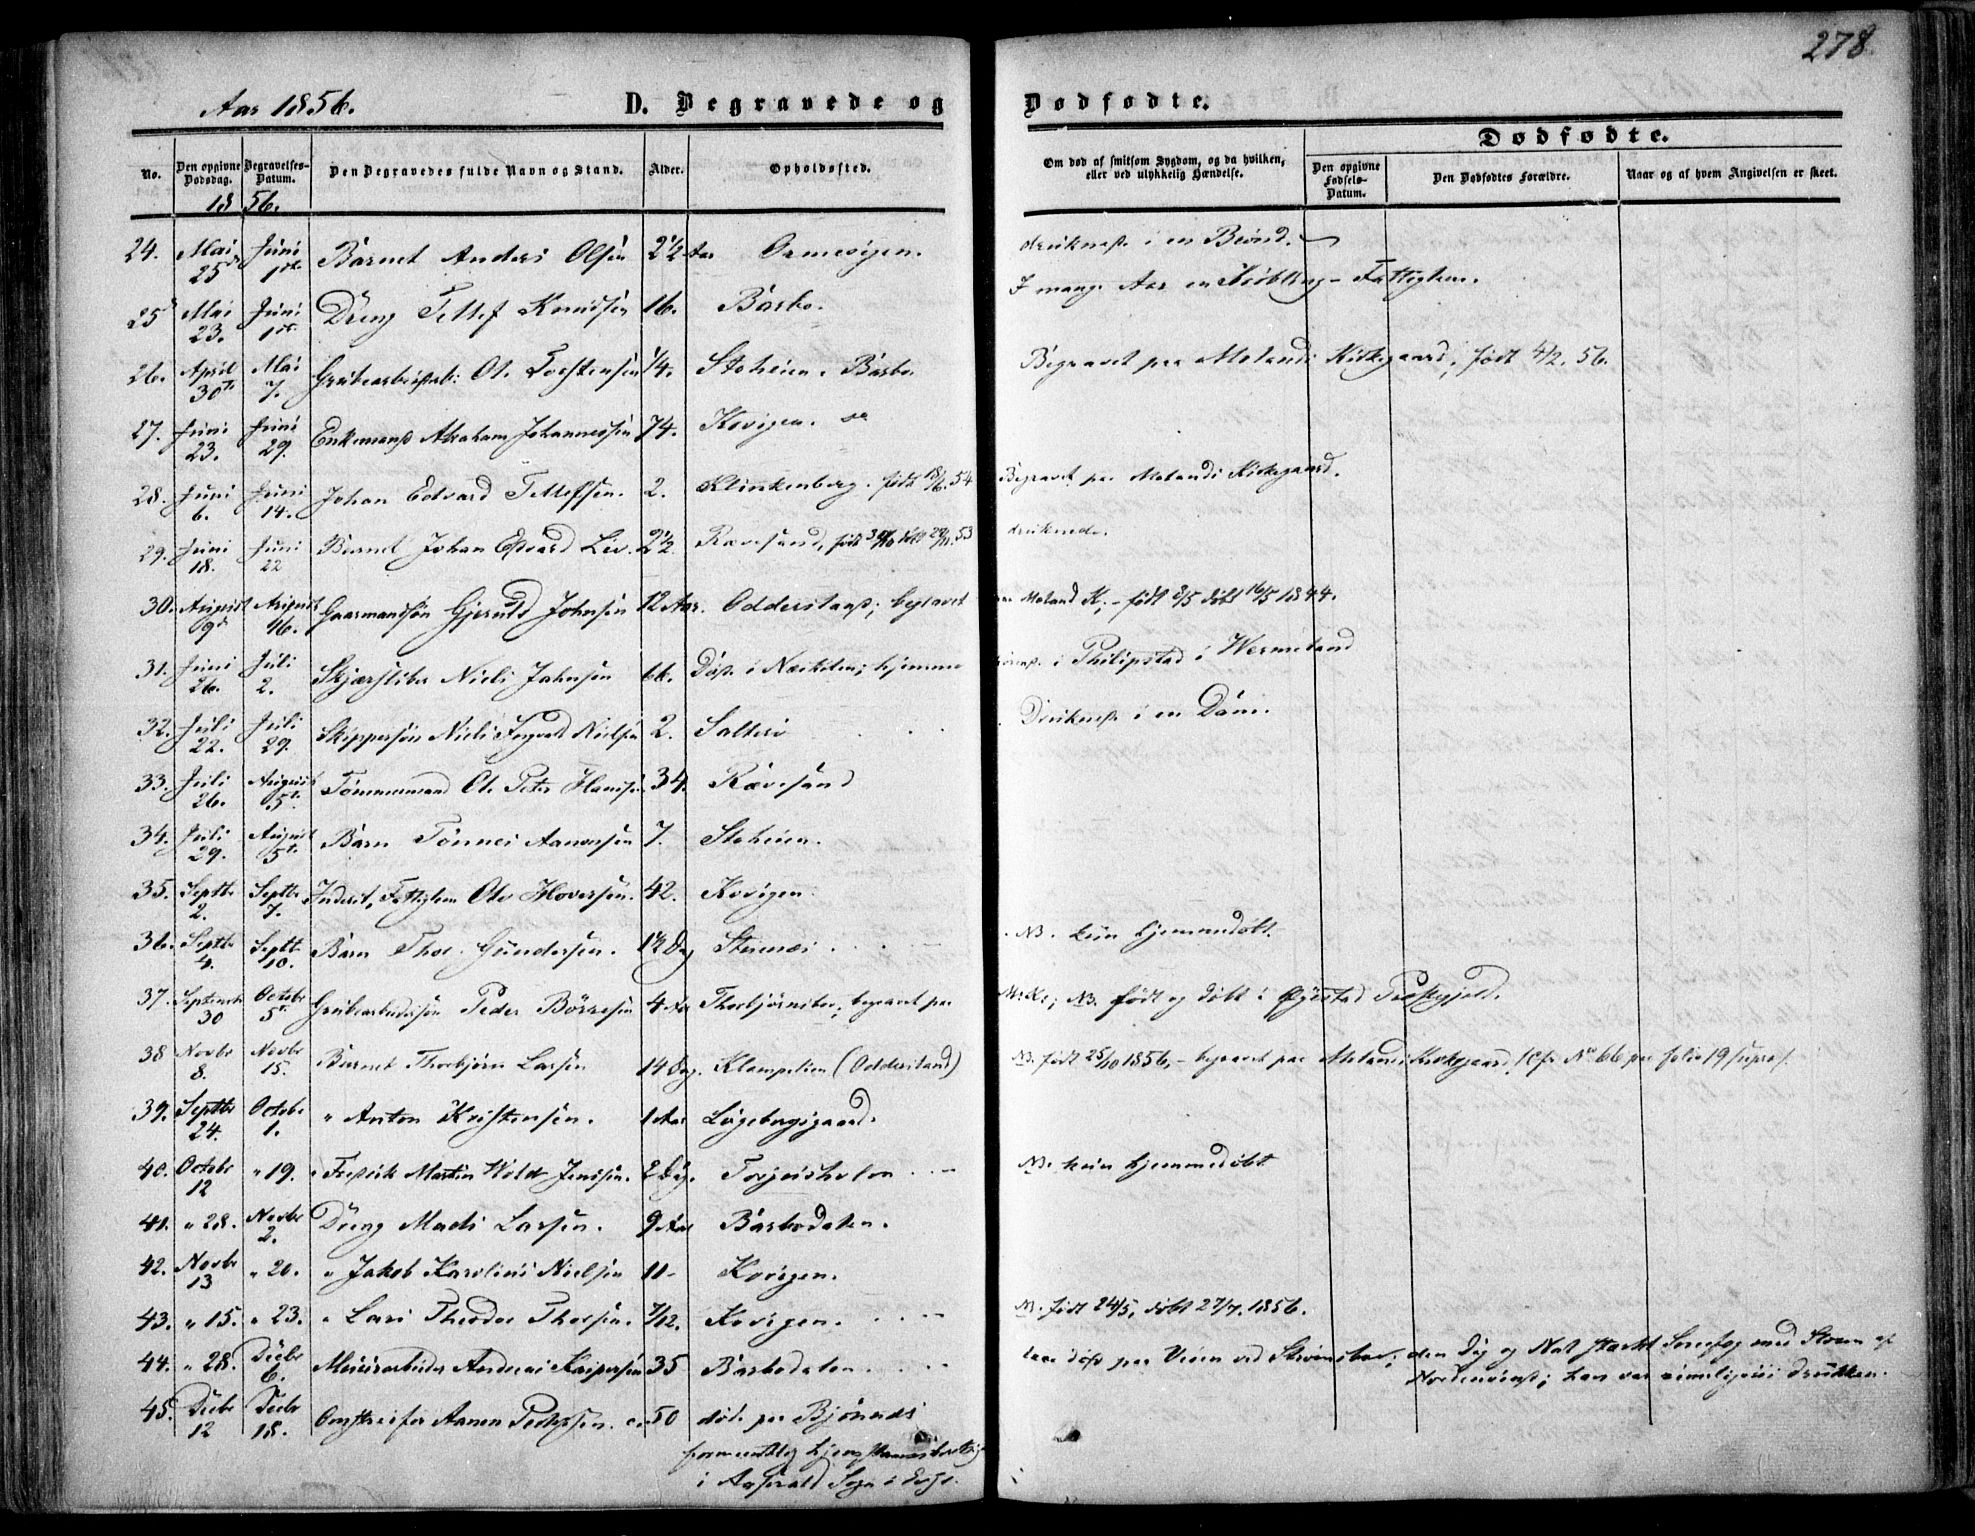 278.
Aar 1856. D. Begravede og Dødfødte.
No. Den opgivne Dødsdag. Begravelses-Datum. Den Begravedes fulde Navn og Stand. Alder. Opholdssted. Om død af smitsom Sygdom, og da hvilken, eller ved ulykkelig Hændelse. Dødfødte. Den opgivne Fødsels-Datum. Den Dødfødtes Forældre. Naar og af hvem Angivelsen er skeet.
1856.
24. Mai 25de Juni 1ste Barnet Anders Olsen 2 1/2 Aar Ormevigen. druknede i en Brønd.
25 Mai 23. Juni 1ste Dreng Tellef Knudsen 16. Barbo. I mange Aar en Krøbling - Fattiglem.
26. April 30te Mai 7. Grubearbeiderb: Ole Torstensen 1/4. Stoheien. Barbo. Begravet paa Molands Kirkegaard; født 4/2. 56.
27. Juni 23. Juni 29. Enkemand Abraham Johannessen 74. Kovigen.
28. Juni 6. Juni 14. Johan Edvard Tellefsen. 2. Klinkenberg. født 18/6. 54 Begravet paa Molands Kirkegaard.
29. Juni 18. Juni 22 Barnet Johan Edvard Liv. 2 1/2 Rævesand, født 30/10 døbt 29/11. 53 druknede.
30. August 9de August 16. Gaarmandsøn Gjeruld Johnsen 12 Aar. Odderstad; begravet paa Moland K; - født 8/5 døbt 16/5 1844.
31. Juni 26. Juli 2. Skjærsliber Niels Johnsen 66. Døde i Nærkilen; hjemme i Philipstad i Wermeland
32. Juli 22. Juli 29. Skippersøn Niels Ingvald Nielsen 2. Salterø Druknede i en Dam.
33. Juli 26. August 5te. Tømmermand Ole Peter Hansen 34. Rævesand
34. Juli 29. August 5te. Barn Tønnes Aanonsen 7. Stoheien.
35. Septbr 2. Septbr 7. Inderst, Fattiglem Ole Hoversen. 42. Kovigen.
36. Septbr 4. Septbr 10. Barn Thor Gundersen. 12 Dag Steensnæs NB. kun hjemmedøbt.
37. Septembr 30 Octobr 5te Grubearbeidersøn Peder Børresen 4 Aar Thorbjørnsbo; begravet paa M. K; NB. født og døbt i Øyestad Præstegjeld.
38 Novbr 8. Novbr 15. Barnet Thorbjørn Larsen 14 Dag. Klampelien (Odderstand) NB. født 25/10 1856, - begravet paa Molands Kirkegaard, (cfr No 66 paa folio 19 supra).
39. Septbr 24. Octobr 1. " Anton Kristensen. 1 Aar Løgebergsgaard.
40. Octobr 12 " 19. " Fredrik Martin Wold Jensen. 2 Dag. Torjusholmen NB. kun hjemmedøbt
41. " 28. Novbr 2. Dreng Mads Larsen. 9 Aar Barbodalen.
42. Novbr 13 " 20. " Jakob Karolius Nielsen 11 - Kovigen.
43. " 15. " 23. " Lars Theodor Thorsen. 7/12. Kovigen. NB. født 24/5, døbt 27/7. 1856.
44. " 28. Decbr 6. Minearbeider Andreas Kaspersen 35 Barbodalen. laae død paa Veien ved den Dag og Nat stærkt Snefog med Storm af Nordenvind; han var rimeligviis drukken.
45. Decbr 12 Decbr 18. Aanon Pedersen. c. 50 døde paa Bjønnes
formentlig
i Sogn